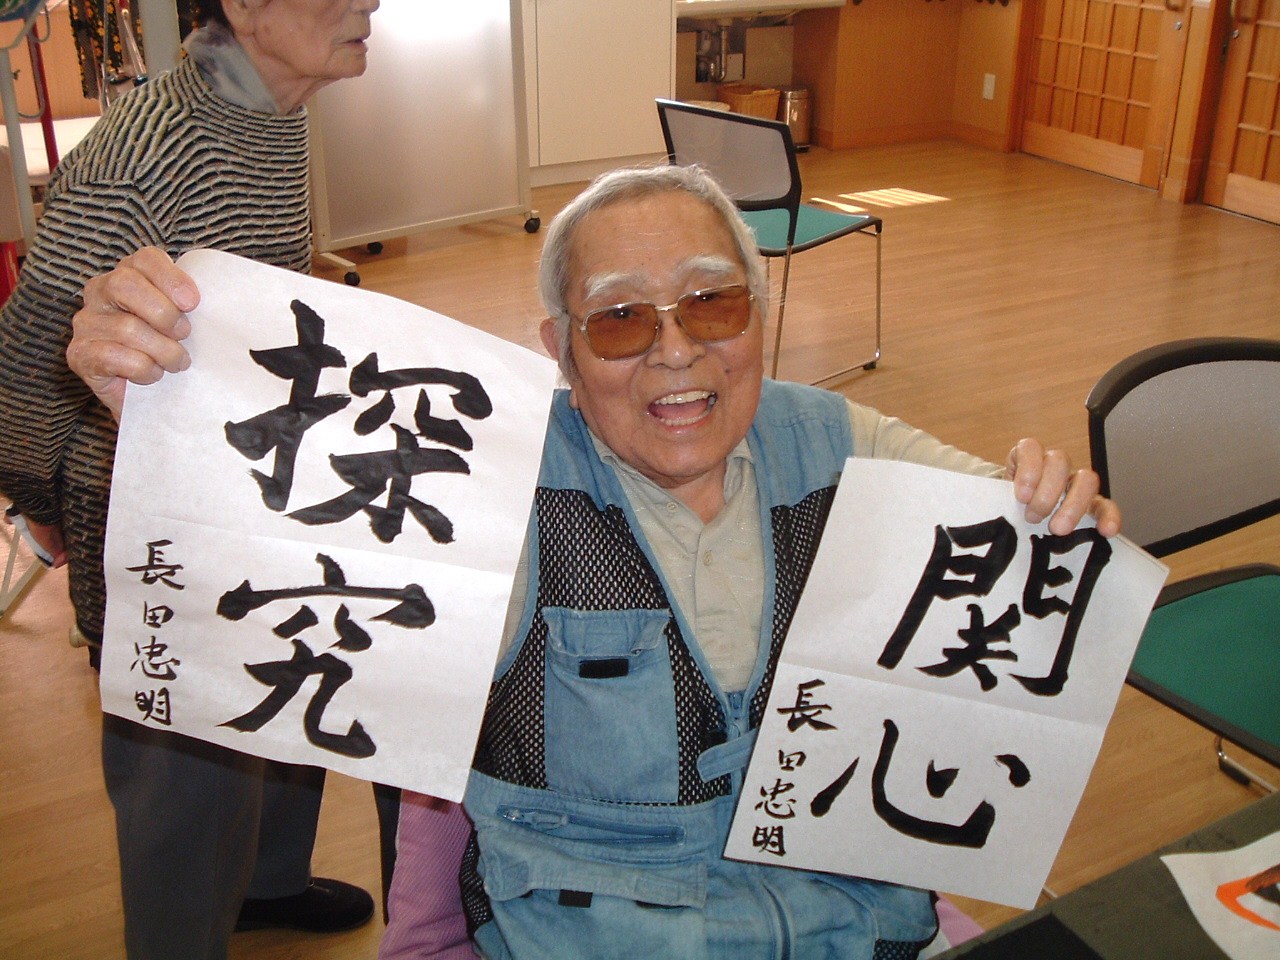 探究
長田忠明
関心
長田忠明